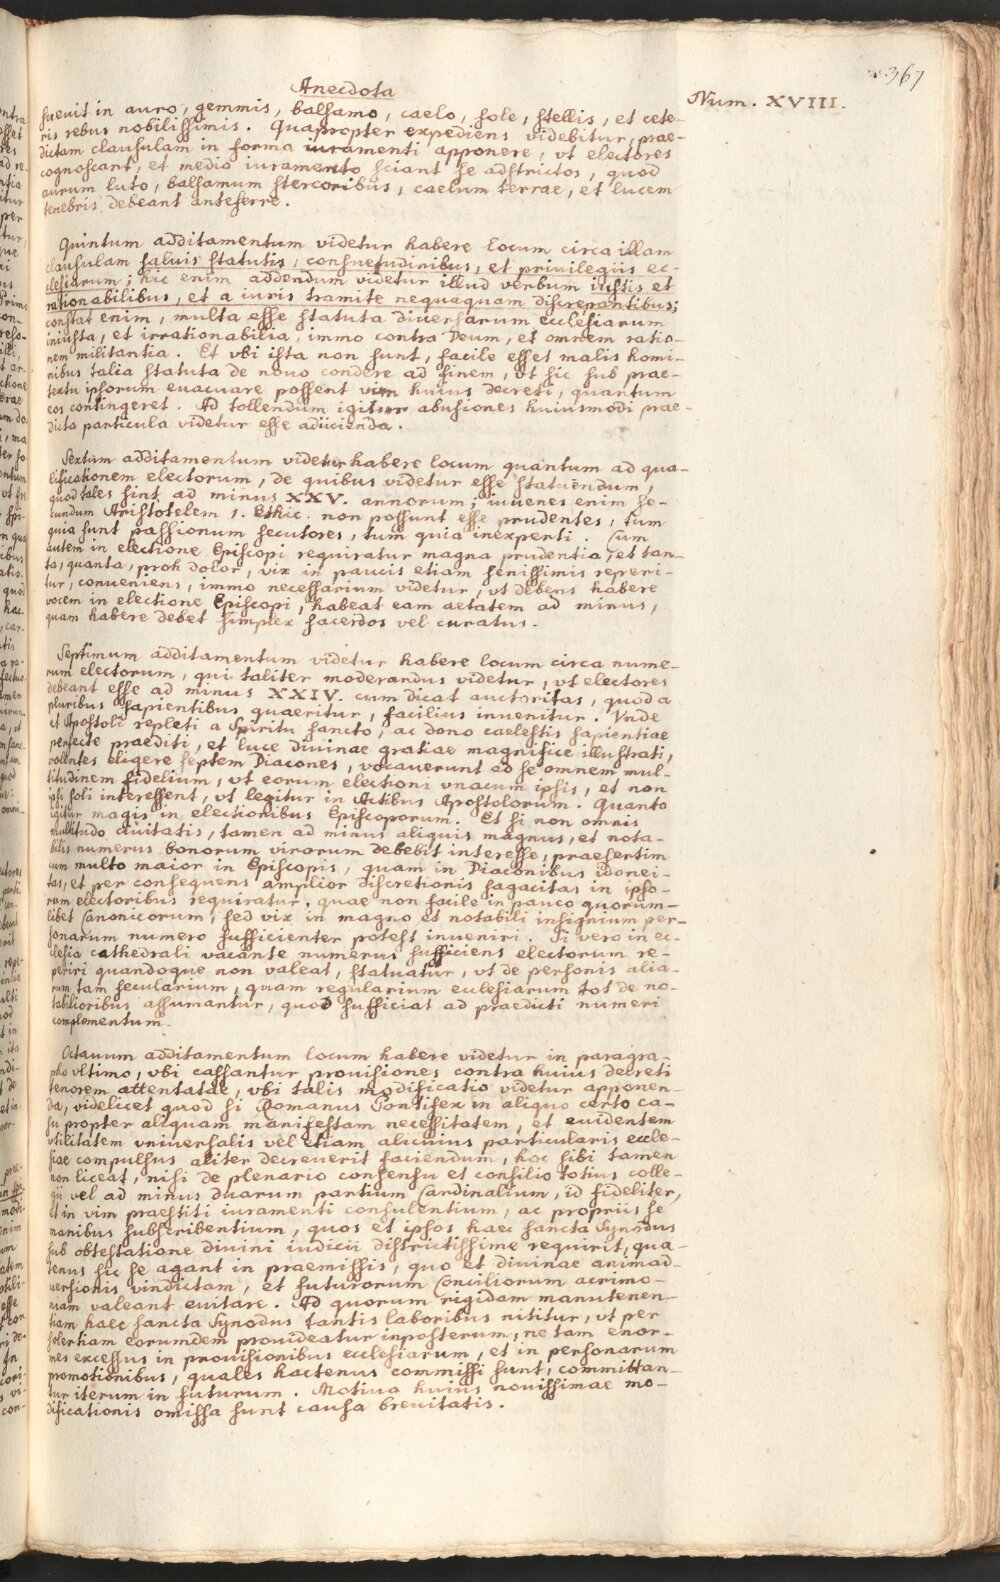 367
Anecdota
Num. XVIII.
sueuit in auro, gemmis, balsamo, caelo, sole, stellis, et cete-
ris rebus nobilissimis. Quapropter expediens videbitur, prae-
dictam clausulam in forma iuramenti apponere, vt electores
cognoscant, et medio iuramento sciant se adstrictos, quod
aurum luto, balsamum stercoribus, caelum terrae, et lucem
tenebris debeant anteferre.
Quintum additamentum videtur habere locum circa illam
clausulam saluis statutis, consuetudinibus, et privilegiis ec-
clesiarum; hic enim addendum videtur illud verbum iustis et
rationabilibus, et a iuris tramite nequaquam discrepantibus;
constat enim, multa esse statuta diuersarum ecclesiarum
iniusta, et irrationabilia, immo contra Deum, et omnem ratio-
nem militantia. Et vbi ista non sunt, facile esset malis homi-
nibus talia statuta de nouo condere ad finem, vt sic sub prae-
textu ipsorum euacuare possent vim huius decreti, quantum
eos contingeret. Ad tollendum igitur abusiones huiusmodi prae-
dicta particula videtur esse adiicienda.
Sextum additamentum videtur habere locum quantum ad qua-
lificationem electorum, de quibus videtur esse statuendum,
quod tales sint ad minus XXV. annorum; iuuenes enim se-
cundum Aristotelem 1. Ethic. non possunt esse prudentes, tum
quia sunt passionum secutores, tum quia inexperti. Cum
autem in electione Episcopi requiratur magna prudentia, et tan-
ta, quanta, proh dolor, vix in paucis etiam senissimis reperi-
tur, conueniens, immo necessarium videtur, vt debens habere
vocem in electione Episcopi, habeat eam aetatem ad minus,
quam habere debet simplex sacerdos vel curatus.
Septimum additamentum videtur habere locum circa nume-
rum electorum, qui taliter moderandus videtur, vt electores
debeant esse ad minus XXIV. cum dicat auctoritas, quod a
pluribus sapientibus quaeritur, facilius inuenitur. Vnde
et Apostoli repleti a Spiritu sancto, ac dono caelestis sapientiae
perfecte praediti, et luce diuinae gratiae magnifice illustrati,
volentes eligere septem Diacones, vocauerunt ad se omnem mul-
titudinem fidelium, vt eorum electioni vnacum ipsis, et non
ipsi soli interessent, vt legitur in Actibus Apostolorum. Quanto
igitur magis in electionibus Episcoporum. Et si non omnis
multitudo ciuitatis, tamen ad minus aliquis magnus, et nota-
bilis numerus bonorum virorum debebit interesse, praesertim
cum multo maior in Episcopis, quam in Diaconibus idonei-
tas, et per consequens amplior discretionis sagacitas in ipso-
rum electoribus requiratur, quae non facile in pauco quorum-
libet Canonicorum, sed vix in magno et notabili insignium per-
sonarum numero sufficienter potest inueniri. Si vero in ec-
clesia cathedrali vacante numerus sufficiens electorum re-
periri quandoque non valeat, statuatur, vt de personis alia-
rum tam secularium, quam regularium ecclesiarum tot de no-
tabilioribus assumantur, quod sufficiat ad praedicti numeri
complementum.
Octauum additamentum locum habere videtur in paragra-
pho vltimo, vbi cassantur prouisiones contra huius decreti
tenorem attentatae, vbi talis modificatio videtur apponen-
da, videlicet quod si Romanus Pontifex in aliquo certo ca-
su propter aliquam manifestam necessitatem, et euidentem
vtilitatem vniuersalis vel etiam alicuius particularis eccle-
siae compulsus aliter decreuerit faciendum, hoc sibi tamen
non liceat, nisi de plenario consensu et consilio totius colle-
gii vel ad minus duarum partium Cardinalium, id fideliter,
et in vim praestiti iuramenti consulentium, ac propriis se
manibus subscribentium, quos et ipsos haec sancta Synodus
sub obtestatione diuini iudicii districtissime requirit, qua-
tenus sic se agant in praemissis, quo et diuinae animad-
uersionis vindictam, et futurorum Conciliorum acrimo-
niam valeant euitare. Ad quorum rigidam manutenen-
tiam haec sancta Synodus tantis laboribus nititur, vt per
solertiam eorumdem prouideatur inposterum, ne tam enor-
mes excessus in prouisionibus ecclesiarum, et in personarum
promotionibus, quales hactenus commissi sunt, committan-
tur iterum in futurum. Motiua huius nouissimae mo-
dificationis omissa sunt causa breuitatis.